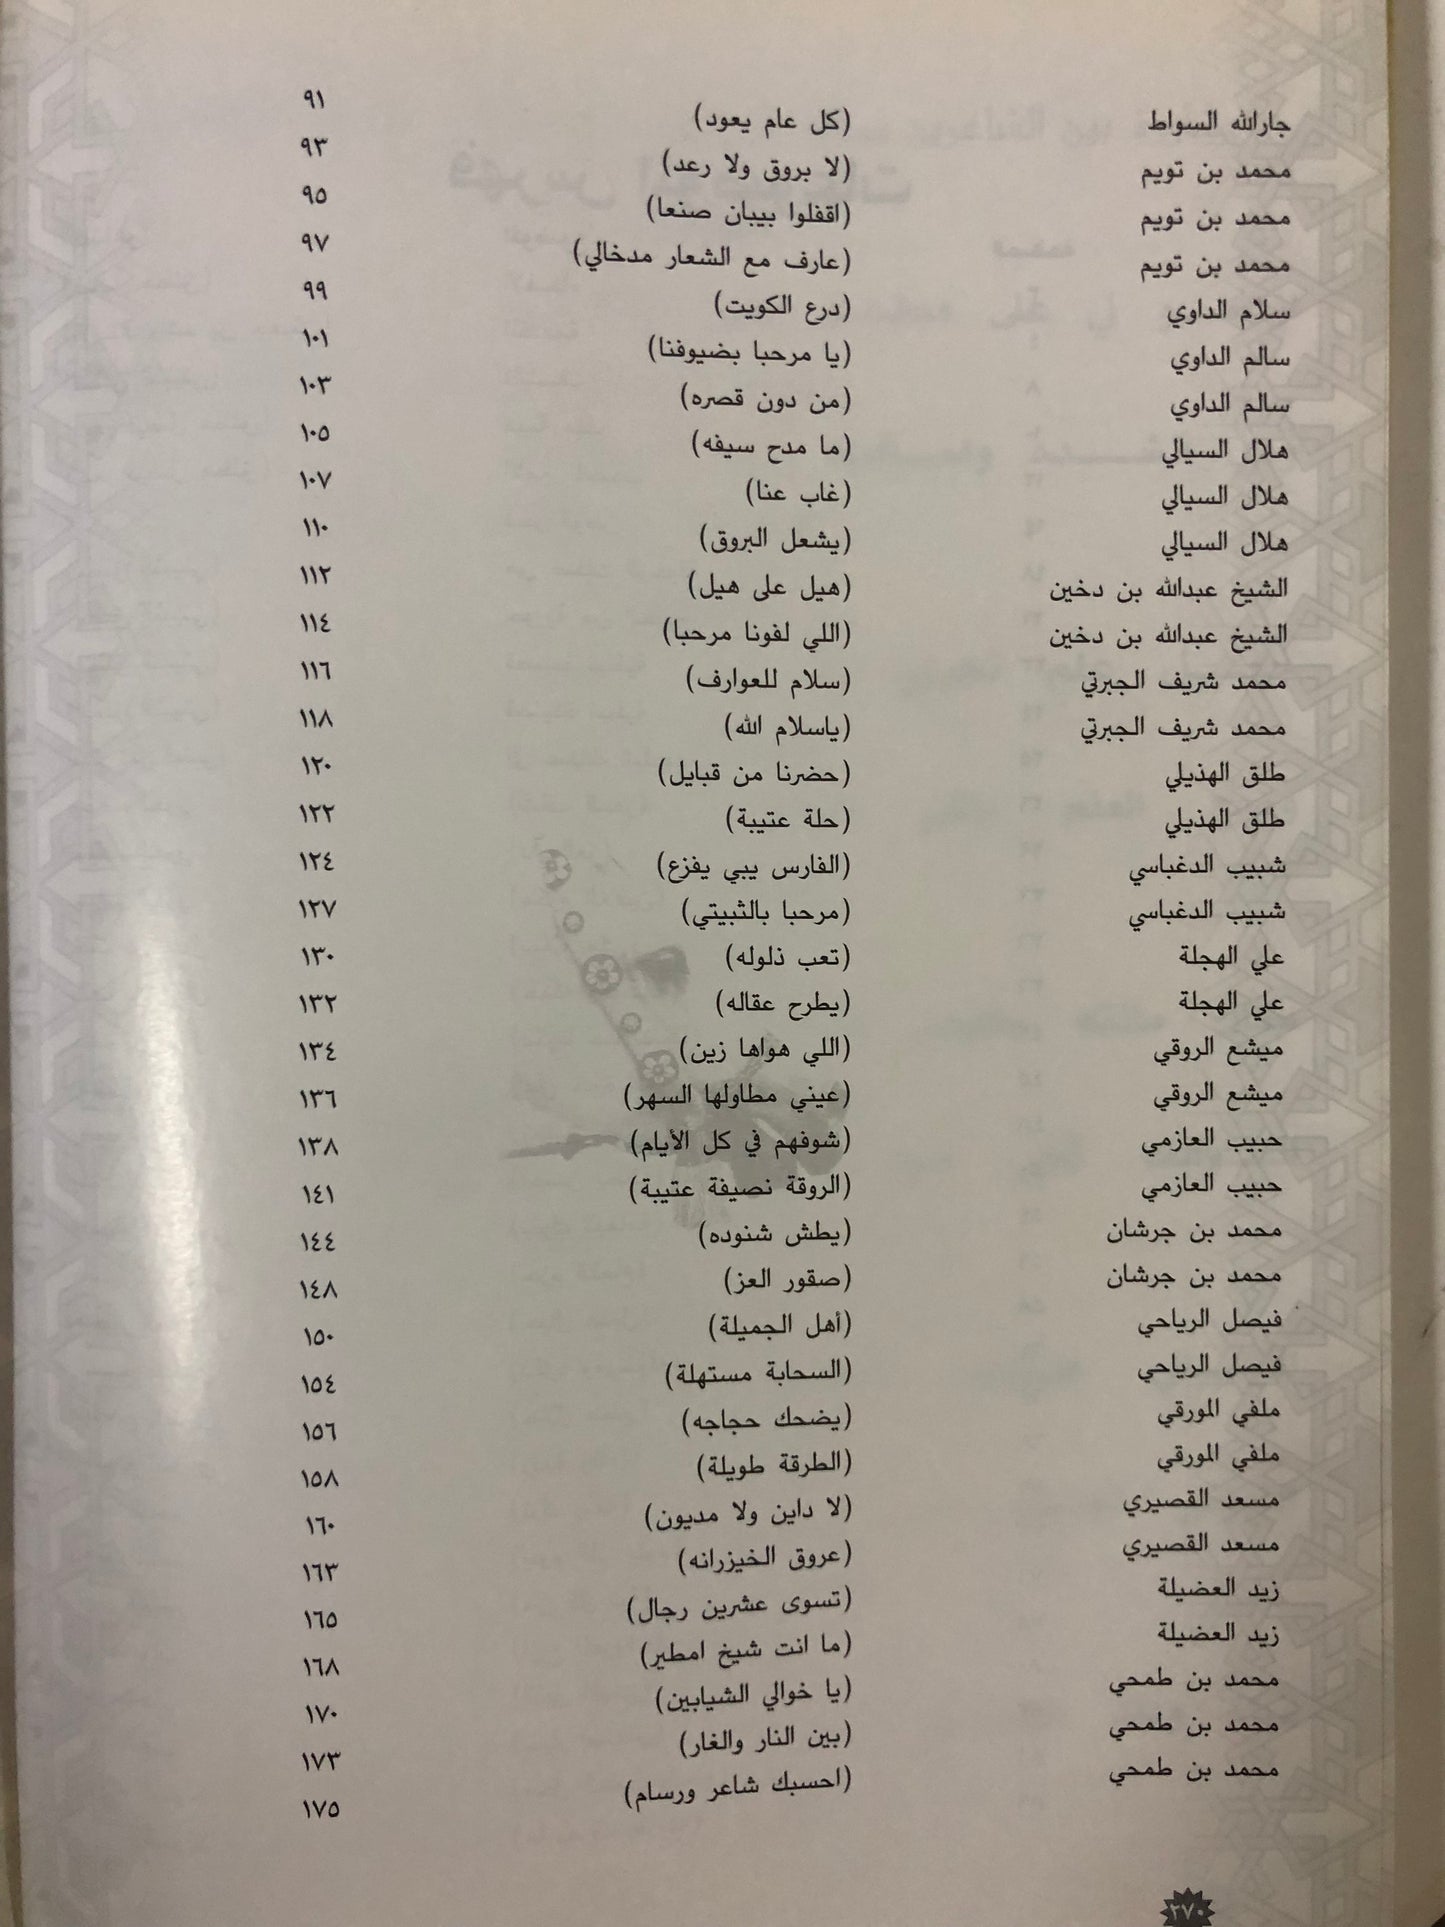 جارالله السواط (كل عام يعود) ٩١
محمد بن تويم (لا بروق ولا رعد) ٩٣
محمد بن تويم (اقفلوا بيبان صنعا) ٩٥
محمد بن تويم (عارف مع الشعار مدخالي) ٩٧
سلام الداوي (درع الكويت) ٩٩
سالم الداوي (يا مرحبا بضيوفنا) ١٠١
سالم الداوي (من دون قصره) ١٠٣
هلال السيالي (ما مدح سيفه) ١٠٥
هلال السيالي (غاب عنا) ١٠٧
هلال السيالي (يشعل البروق) ١١٠
الشيخ عبدالله بن دخين (هيل على هيل) ١١٢
الشيخ عبدالله بن دخين (اللي لفونا مرحبا) ١١٤
محمد شريف الجبرتي (سلام للعوارف) ١١٦
محمد شريف الجبرتي (ياسلام الله) ١١٨
طلق الهذيلي (حضرنا من قبايل) ١٢٠
طلق الهذيلي (حلة عتيبة) ١٢٢
شبيب الدغباسي (الفارس يبي يفزع) ١٢٤
شبيب الدغباسي (مرحبا بالثبيتي) ١٢٧
علي الهجلة (تعب ذلوله) ١٣٠
علي الهجلة (يطرح عقاله) ١٣٢
ميشع الروقي (اللي هواها زين) ١٣٤
ميشع الروقي (عيني مطاولها السهر) ١٣٦
حبيب العازمي (شوفهم في كل الأيام) ١٣٨
حبيب العازمي (الروقة نصيفة عتيبة) ١٤١
محمد بن جرشان (يطش شنوده) ١٤٤
محمد بن جرشان (صقور العز) ١٤٨
فيصل الرياحي (أهل الجميلة) ١٥٠
فيصل الرياحي (السحابة مستهلة) ١٥٤
ملفي المورقي (يضحك حجاجه) ١٥٦
ملفي المورقي (الطرقة طويلة) ١٥٨
مسعد القصيري (لا داين ولا مديون) ١٦٠
مسعد القصيري (عروق الخيزرانه) ١٦٣
زيد العضيلة (تسوى عشرين رجال) ١٦٥
زيد العضيلة (ما انت شيخ امطير) ١٦٨
محمد بن طمحي (يا خوالي الشيابين) ١٧٠
محمد بن طمحي (بين النار والغار) ١٧٣
محمد بن طمحي (احسبك شاعر ورسام) ١٧٥
٢٧٠